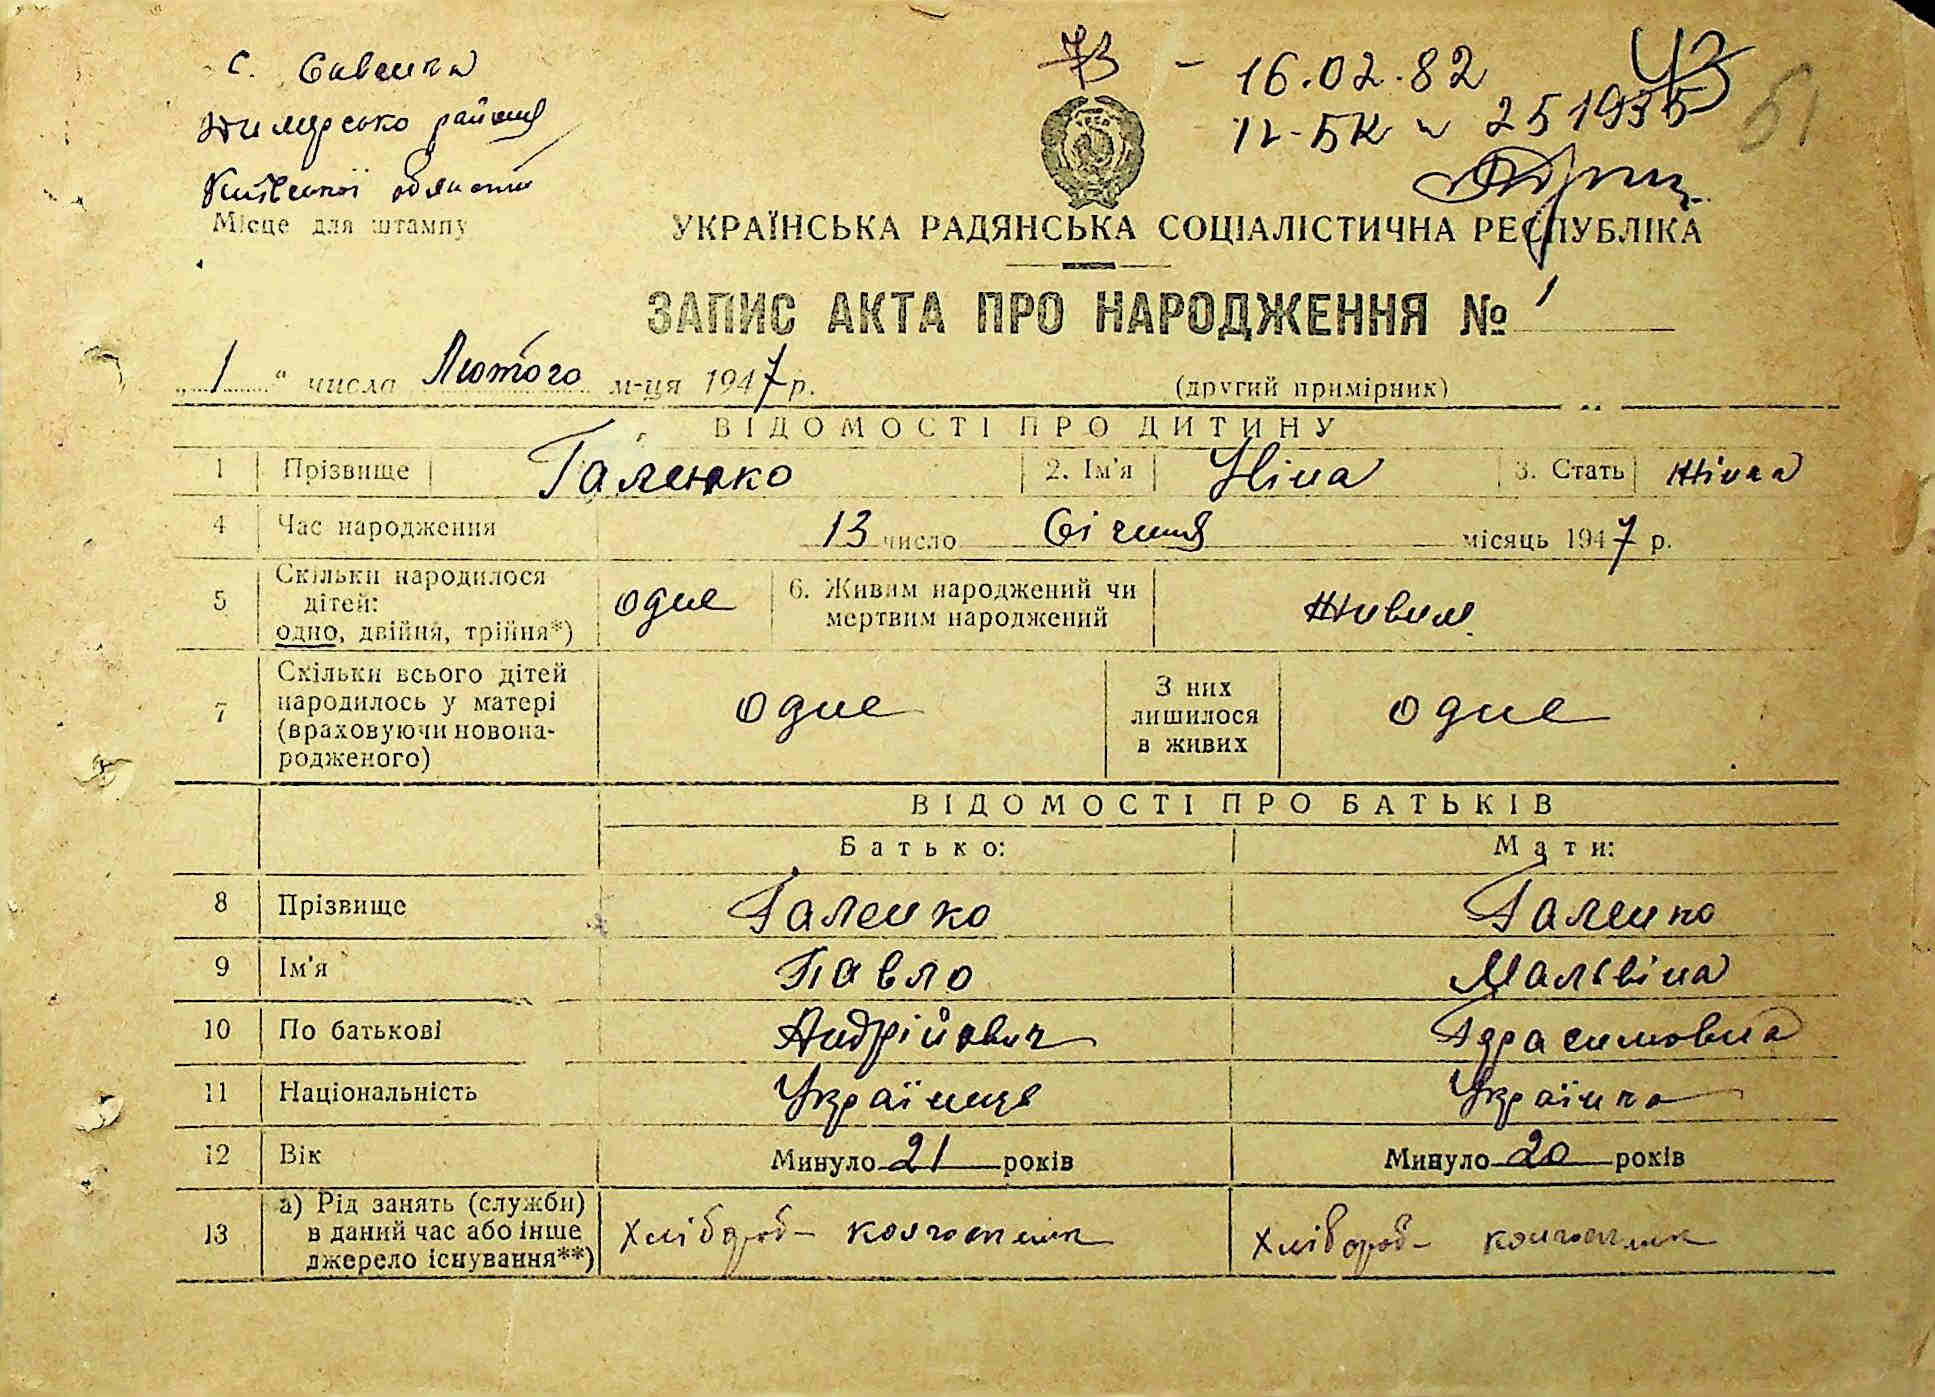 с. Савенка
Димерсько району
Київської області
Місце для штампу
73 - 16.02.82
ІІ-БК № 251935
43
51
УКРАЇНСЬКА РАДЯНСЬКА СОЦІАЛІСТИЧНА РЕСПУБЛІКА
ЗАПИС АКТА ПРО НАРОДЖЕННЯ № 1
„1“ числа Лютого м-ця 1947 р.
(другий примірник)
ВІДОМОСТІ ПРО ДИТИНУ
1 Прізвище Галенко 2. Ім'я Ніна 3. Стать Жіноча
4 Час народження 13 число Січня місяць 1947 р.
5 Скільки народилося дітей: одно, двійня, трійня*) одне 6. Живим народжений чи мертвим народжений живим
7 Скільки всього дітей народилось у матері (враховуючи новонародженого) одне З них лишилося в живих одне
ВІДОМОСТІ ПРО БАТЬКІВ
Батько: Мати:
8 Прізвище Галенко Галенко
9 Ім'я Павло Мальвіна
10 По батькові Андрійович Гарасимовна
11 Національність Українець Українка
12 Вік Минуло 21 років Минуло 20 років
13 а) Рід занять (служби) в даний час або інше джерело існування**) Хлібороб- колгоспник Хлібороб- колгоспник